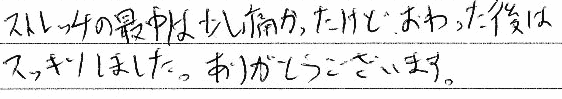 ストレッチの最中は少し痛かったけど、おわった後は
スッキリしました。ありがとうございます。